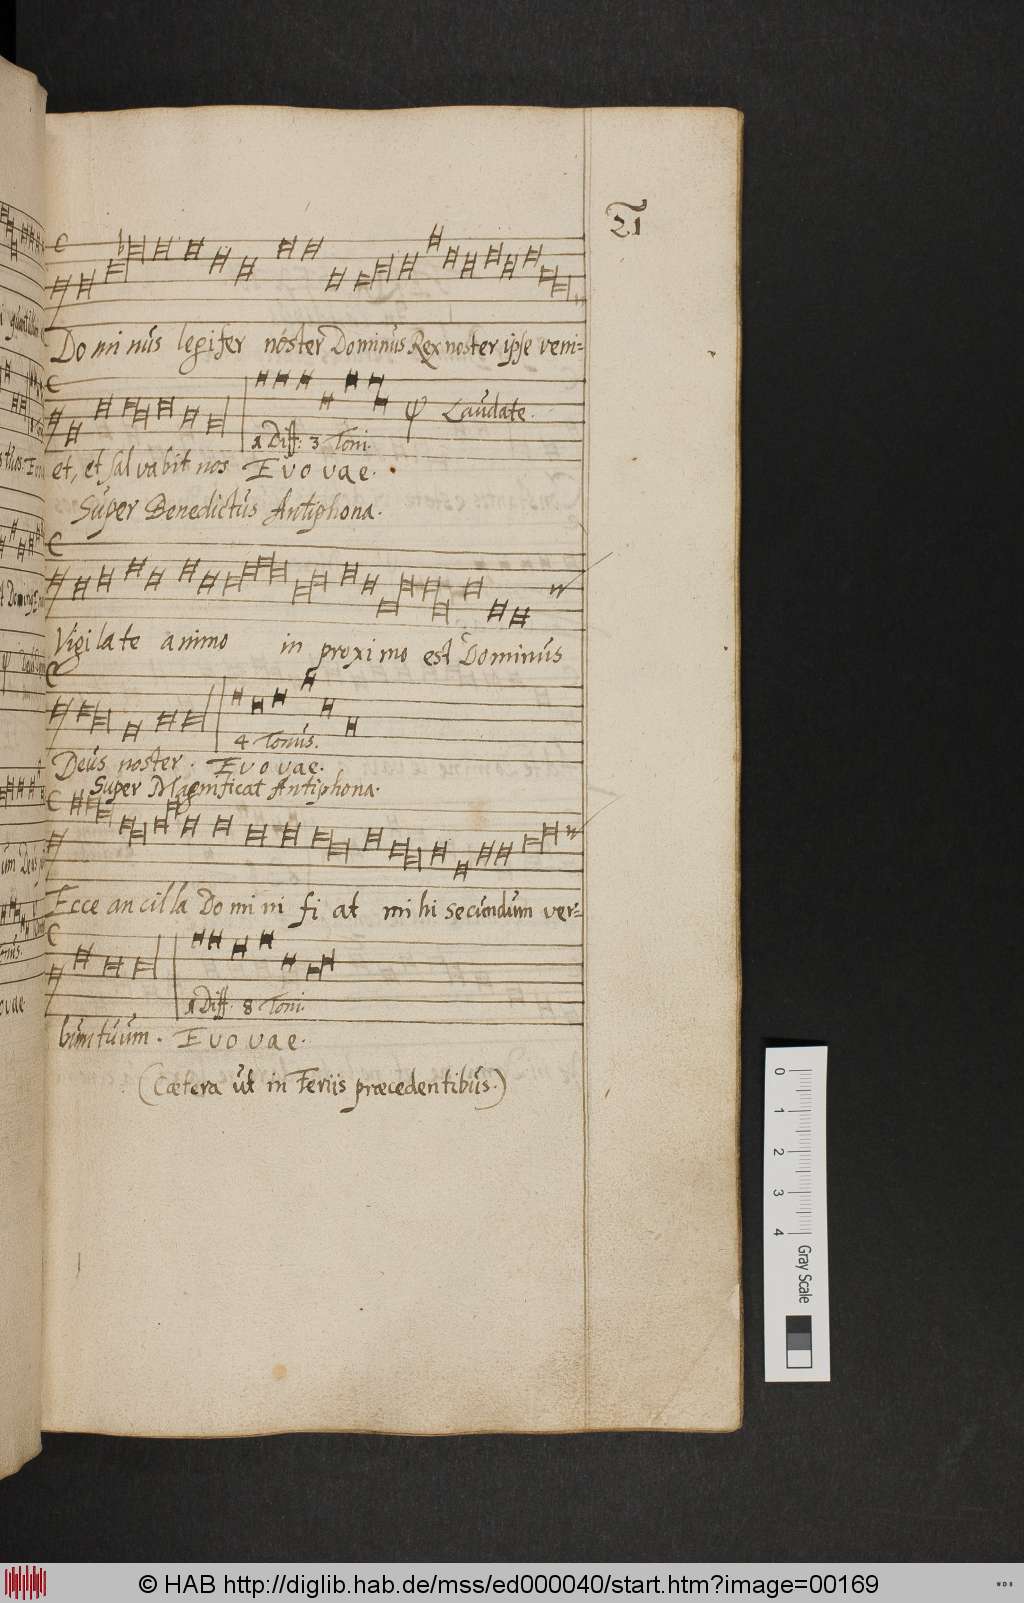 Dominus legifer noster Dominus Rex noster ipse veni=
Laudate.
1 Diff: 3 Toni.
et, et salvabit nos Evovae.
Super Benedictus Antiphona.
Vigilate animo in proximo est Dominus
4 Tonus.
Deus noster. Evovae.
Super Magnificat Antiphona.
Ecce ancilla Domini fiat mihi secundum ver=
1 Diff. 8 Toni.
bum tuum. Evovae.
(Cætera ut in Feriis præcedentibus.)
0 1 2 3 4 Gray Scale
© HAB http://diglib.hab.de/mss/ed000040/start.htm?image=00169
WDB